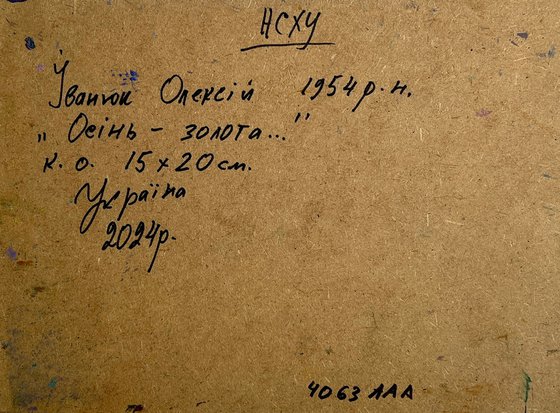 НСХУ
Іванюк Олексій 1954 р.н.
„Осінь - золота..."
к. о. 15 х 20 см.
Україна
2024р.
4063 ЛАА